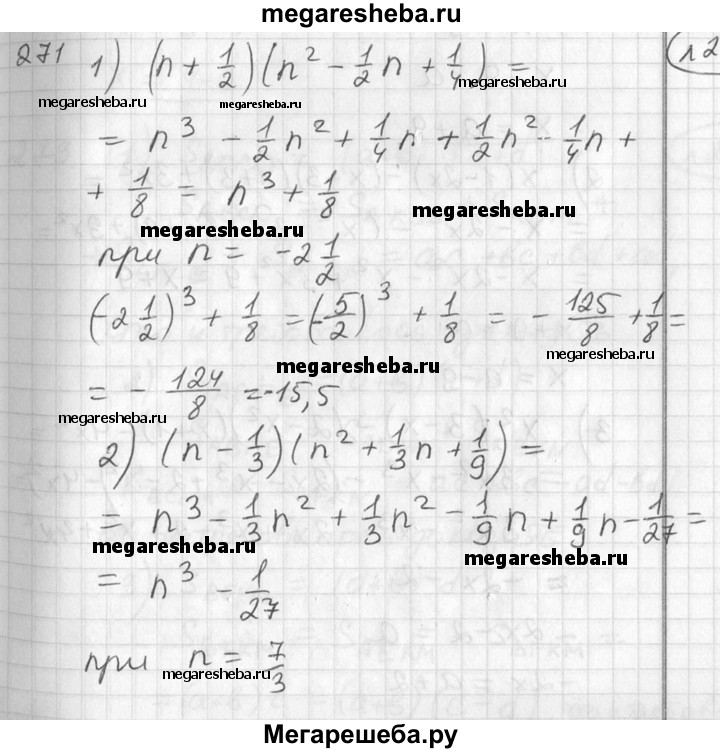 megaresheba.ru
271 1) (n + 1/2)(n² - 1/2 n + 1/4) =
megaresheba.ru megaresheba.ru megaresheba.ru
= n³ - 1/2 n² + 1/4 n + 1/2 n² - 1/4 n +
+ 1/8 = n³ + 1/8
megaresheba.ru megaresheba.ru
при n = -2 1/2
(-2 1/2)³ + 1/8 = (-5/2)³ + 1/8 = - 125/8 + 1/8 =
megaresheba.ru megaresheba.ru
= - 124/8 = -15,5
megaresheba.ru
2) (n - 1/3)(n² + 1/3 n + 1/9) =
= n³ - 1/3 n² + 1/3 n² - 1/9 n + 1/9 n - 1/27 =
megaresheba.ru megaresheba.ru
= n³ - 1/27
при n = 7/3
megaresheba.ru
Мегарешеба.ру